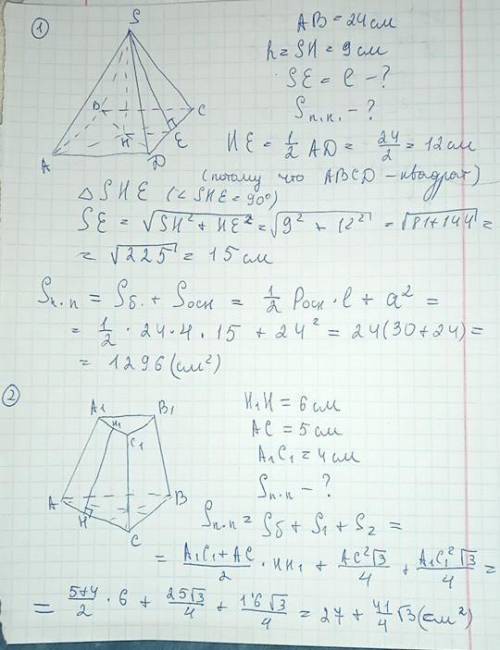 1
S
A
B
C
D
H
E
AB = 24 см
h = SH = 9 см
SE = l - ?
Sп.п. - ?
HE = 1/2 AD = 24/2 = 12 см
(потому что ABCD - квадрат)
△ SHE (∠ SHE = 90°)
SE = √(SH² + HE²) = √(9² + 12²) = √(81 + 144) =
= √225 = 15 см
Sп.п = Sб. + Sосн = 1/2 Pосн · l + a² =
= 1/2 · 24 · 4 · 15 + 24² = 24(30 + 24) =
= 1296 (см²)
2
A1
B1
H1
C1
A
B
H
C
H₁H = 6 см
AC = 5 см
A₁C₁ = 4 см
Sп.п - ?
Sп.п = Sб + S₁ + S₂ =
= (A₁C₁ + AC)/2 · HH₁ + AC²√3/4 + A₁C₁²√3/4 =
= (5+4)/2 · 6 + 25√3/4 + 16√3/4 = 27 + 41/4 √3 (см²)